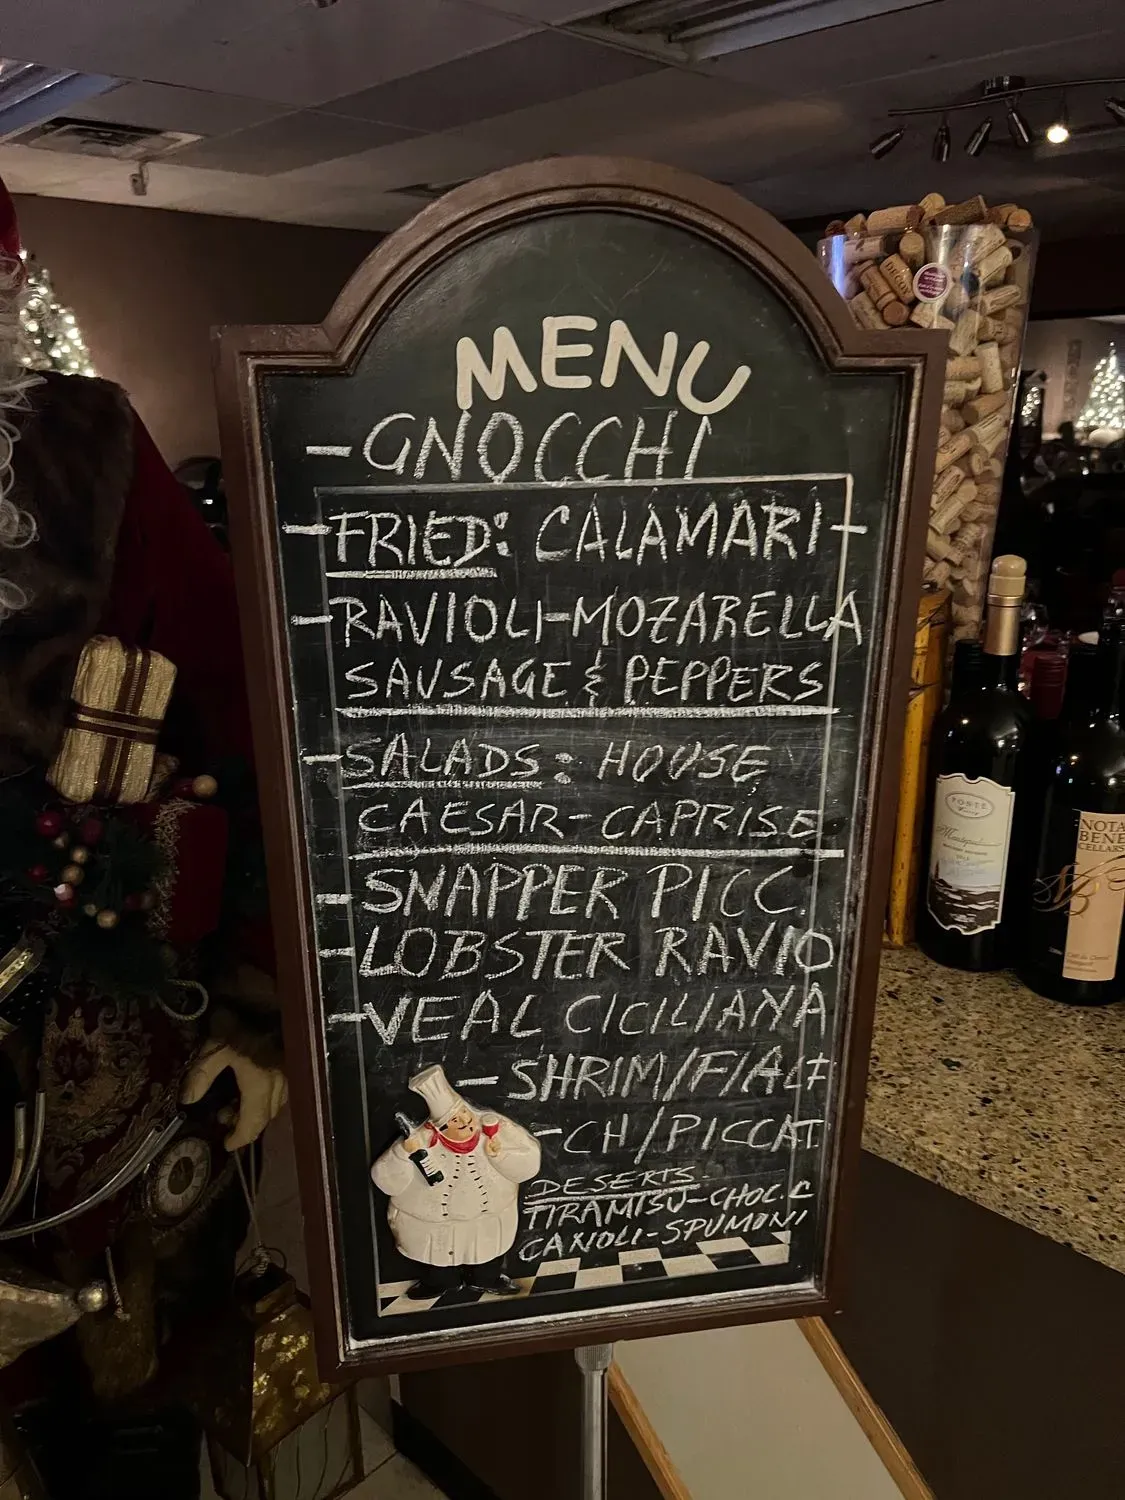 MENU
-GNOCCHI
-FRIED: CALAMARI-
-RAVIOLI-MOZARELLA
SAUSAGE & PEPPERS
-SALADS: HOUSE
CAESAR-CAPRISE
-SNAPPER PICC.
-LOBSTER RAVIO
-VEAL CICILIANA
-SHRIM/F/ALF
-CH/PICCAT
DESERTS-
TIRAMISU-CHOC.C
CANOLI-SPUMONI
PONTE
NOTA
BENE
CELLARS